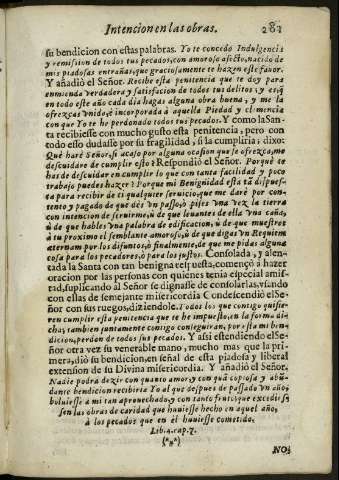 Intencion en las obras. 281
su bendicion con estas palabras. Yo te concedo Indulgencia
y remission de todos tus pecados, con amoroso afecto, nacido de
mis piadosas entrañas, que graciosamente te hazen este favor.
Y añadió el Señor. Recibe esta penitencia que te doy para
enmienda verdadera y satisfacion de todos tus delitos, y es, q̃
en todo este año cada dia hagas alguna obra buena, y me la
ofrezcas vnida, è incorporada à aquella Piedad y clemencia
con que Yo te he perdonado todos tus pecados. Y como la San-
ta recibiesse con mucho gusto esta penitencia, pero con
todo esso dudasse por su fragilidad, si la cumpliria; dixo:
Què harè Señor, si acaso por alguna ocasion que se ofrezca, me
descuidare de cumplir esto? Respondió el Señor. Porquè te
has de descuidar en cumplir lo que con tanta facilidad y poco
trabajo puedes hazer? Porque mi Benignidad està tã dispues-
ta para recibir de ti qualquier servicio, que me darè por con-
tento y pagado de que dès vn passo, ò pises vna vez la tierra
con intencion de servirme, ù de que levantes de ella vna caña,
ù de que hables vna palabra de edificacion, ù de que muestres
à tu proximo el semblante amoroso, ù de que digas vn Requiem
æternam por los difuntos, ò finalmente, de que me pidas alguna
cosa para los pecadores, ò para los justos. Consolada, y alen-
tada la Santa con tan benigna respuesta, començò à hazer
oracion por las personas con quienes tenia especial amis-
tad, suplicando al Señor se dignasse de consolarlas, vsando
con ellas de semejante misericordia. Condescendió el Se-
ñor con sus ruegos, diziendole. Todos los que contigo quisie-
ren cumplir esta penitencia que te he impuesto, en la forma di-
cha; tambien juntamente contigo conseguiran, por esta mi ben-
dicion, perdon de todos sus pecados. Y assi estendiendo el Se-
ñor otra vez su venerable mano, mucho mas que la pri-
mera, diò su bendicion, en señal de esta piadosa y liberal
extension de su Divina misericordia. Y añadió el Señor.
Nadie podra dezir con quanto amor, y con quã copiosa y abũ-
dante bendicion recibiera Yo al que despues de passado vn año,
bolviesse à mi tan aprovechado, y con tanto fruto, que excedies-
sen las obras de caridad que huviesse hecho en aquel año,
à los pecados que en èl huviesse cometido.
Lib. 4. cap. 7.
(***)
NO;